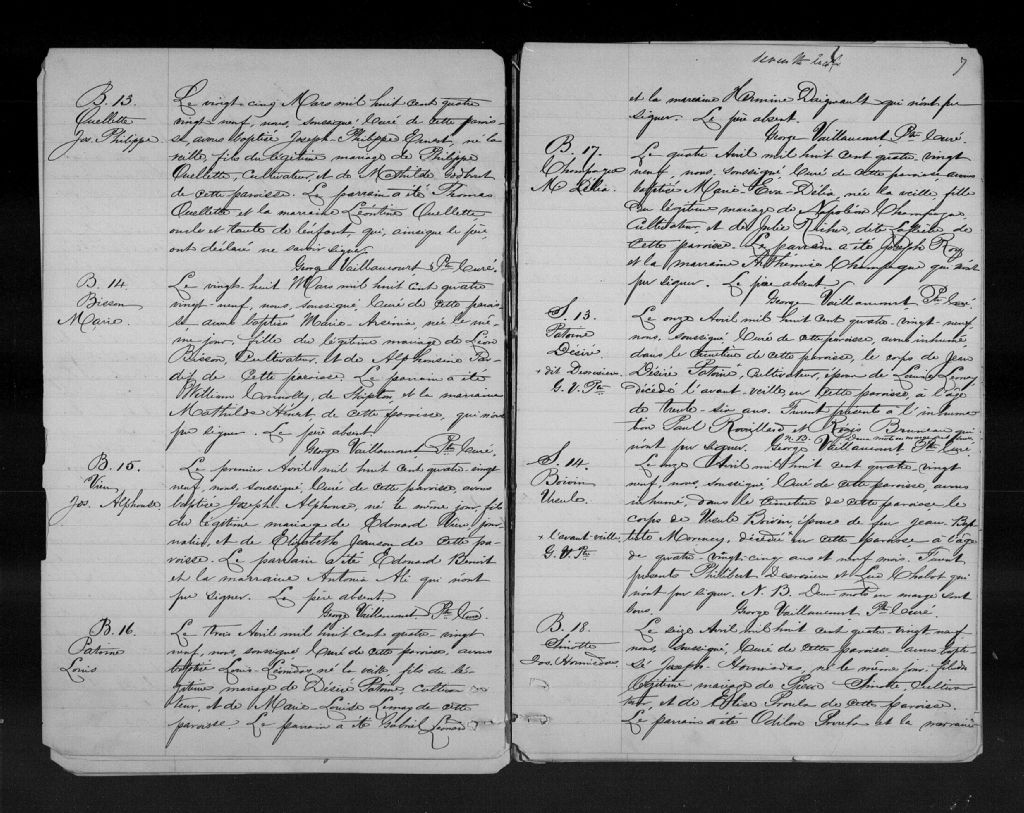 B. 13.
Ouellette
Jos. Philippe
Le vingt-cinq Mars mil huit cent quatre
vingt-neuf, nous, soussigné Curé de cette parois-
se, avons baptisé Joseph-Philippe Ernest, né la
veille, fils du légitime mariage de Philippe
Ouellette, Cultivateur, et de Mathilde Godbout
de cette paroisse. Le parrain a été Thomas
Ouellette et la marraine Léontine Ouellette
oncle et tante de l'enfant, qui, ainsi que le père,
ont déclaré ne savoir signer.
George Vaillancourt Ptre Curé.
B. 14.
Bisson
Marie
Le vingt-huit Mars mil huit cent quatre
vingt-neuf, nous, soussigné, Curé de cette parois-
se, avons baptisé Marie-Arsénia, née le mê-
me jour, fille du légitime mariage de Léon
Bisson, Cultivateur, et de Alphonsine
de cette paroisse. Le parrain a été
William Connolly, de Shipton, et la marraine
Mathilda de cette paroisse, qui n'ont
pu signer. Le père absent.
George Vaillancourt Ptre Curé.
B. 15.
Vien
Jos. Alphonse
Le premier Avril mil huit cent quatre vingt
neuf, nous, soussigné, Curé de cette paroisse, avons
baptisé Joseph-Alphonse, né le même jour, fils
du légitime mariage de Edouard Vien jour-
nalier, et de Elizabeth Janson de cette pa-
roisse. Le parrain a été Edouard Benoit
et la marraine Antonia Ali qui n'ont
pu signer. Le père absent.
George Vaillancourt Ptre Curé.
B. 16.
Patoine
Louis
Le trois Avril mil huit cent quatre-vingt
neuf, nous, soussigné Curé de cette paroisse, avons
baptisé Louis Léonidas né la veille, fils du lé-
gitime mariage de Désiré Patoine, cultiva-
teur, et de Marie-Louise Lemay de cette
paroisse. Le parrain a été Gabriel Léonard
seventh leaf
7
et la marraine Hermine Daigneault qui n'ont pu
signer. Le père absent.
George Vaillancourt Ptre Curé.
B. 17.
Champagne
M. Délia
Le quatre Avril mil huit cent quatre-vingt
neuf, nous, soussigné, Curé de cette paroisse avons
baptisé Marie-Eva-Délia, née la veille, fille
du légitime mariage de Napoléon Champagne,
Cultivateur, et de Julie Richer, dite Laflèche de
cette paroisse. Le parrain a été Joseph Roy
et la marraine Arthémise Champagne qui n'ont
pu signer. Le père absent.
George Vaillancourt Ptre Curé
S. 13.
Patoine
Désiré
+ dit
G. V. Ptre
Le onze Avril mil huit cent quatre-vingt-neuf
nous, soussigné Curé de cette paroisse, avons inhumé
dans le cimetière de cette paroisse, le corps de Jean
Désiré Patoine, Cultivateur, époux de Louise Lemay
décédé l'avant-veille, en cette paroisse, à l'âge
de trente-six ans. Furent présents à l'inhuma-
tion Paul Rouillard et Régis Bruneau qui
n'ont pu signer. N. B. Deux mots en marge sont bons.
George Vaillancourt Ptre Curé
S. 14.
Boivin
Ursule
+ l'avant-veille
G. V. Ptre
Le onze Avril mil huit cent quatre-vingt
neuf, nous, soussigné, Curé de cette paroisse, avons
inhumé, dans le cimetière de cette paroisse le
corps de Ursule Boivin, épouse de feu Jean-Bap-
tiste Morency, décédée en cette paroisse à l'âge
de quatre-vingt-cinq ans et neuf mois. Furent
présents Philibert et Luc Chabot qui
n'ont pu signer. N. B. Deux mots en marge sont
bons. George Vaillancourt Ptre Curé
B. 18.
Sinotte
Jos. Hormisdas
Le seize Avril mil huit cent quatre-vingt neuf
nous, soussigné, Curé de cette paroisse avons bapti-
sé Joseph Hormisdas, né le même jour, fils du
légitime mariage de Pierre Sinotte, cultiva-
teur, et de Elise Proulx de cette paroisse.
Le parrain a été Odilon Proulx et la marraine